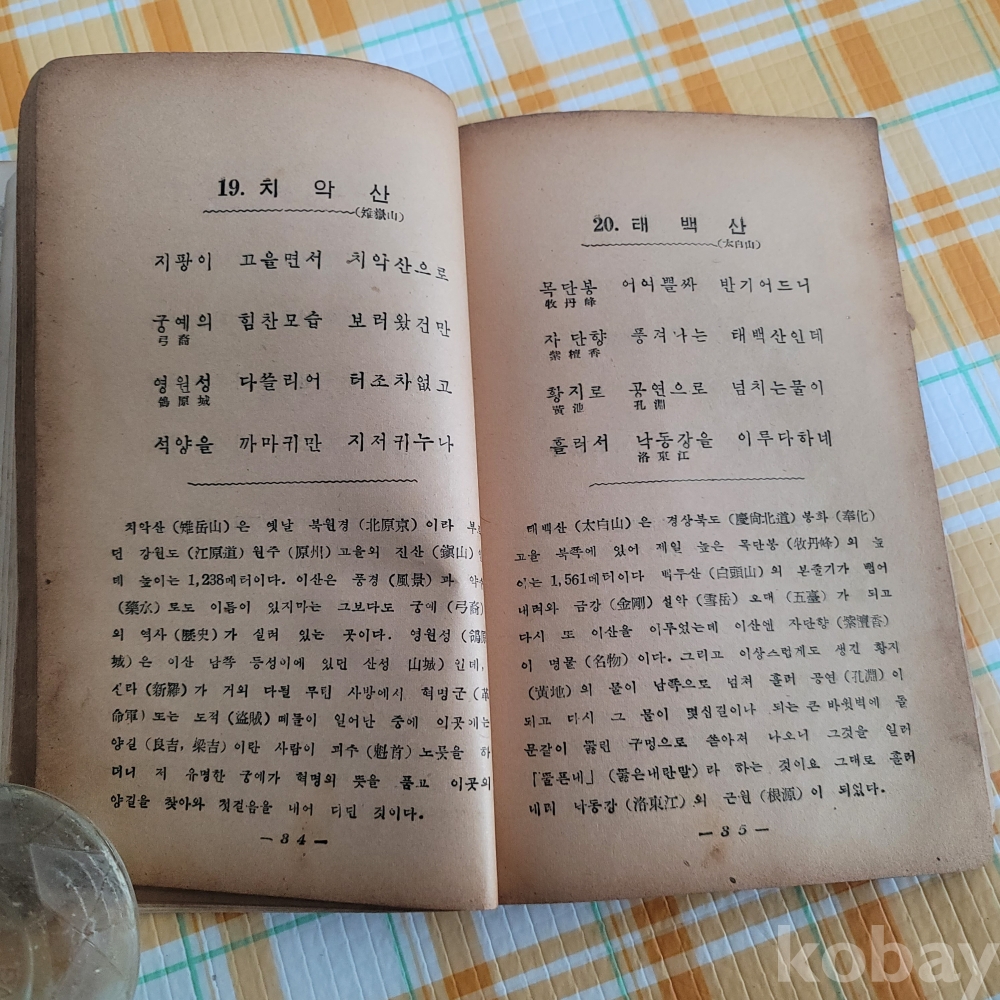 19. 치 악 산
(雉嶽山)
지팡이 끄을면서 치악산으로
궁예의 힘찬모습 보러왔건만
弓裔
영원성 다쓸리어 터조차없고
鴒原城
석양을 까마귀만 지저귀누나
치악산 (雉岳山) 은 옛날 북원경 (北原京) 이라
던 강원도 (江原道) 원주 (原州) 고을의 진산 (鎭山)
데 높이는 1,238메터이다. 이산은 풍경 (風景) 과
(藥水) 로도 이름이 있지마는 그보다도 궁예 (弓裔)
의 역사 (歷史) 가 실려 있는 곳이다. 영원성
城) 은 이산 남쪽 등성이에 있던 산성 山城) 인데,
신라 (新羅) 가 거의 다될 무렵 사방에서 혁명군 (革
命軍) 또는 도적 (盜賊) 떼들이 일어난 중에 이곳에는
양길 (良吉, 梁吉) 이란 사람이 괴수 (魁首) 노릇을 하
더니 저 유명한 궁예가 혁명의 뜻을 품고 이곳의
양길을 찾아와 첫걸음을 내어 디딘 것이다.
— 34 —
20. 태 백 산
(太白山)
목단봉 어이뿔싸 반기어드니
牧丹峰
자단향 풍겨나는 태백산인데
紫檀香
황지로 공연으로 넘치는물이
黃池 孔淵
흘러서 낙동강을 이루다하네
洛東江
태백산 (太白山) 은 경상북도 (慶尙北道) 봉화 (奉化)
고을 북쪽에 있어 제일 높은 목단봉 (牧丹峰) 의 높
이는 1,561메터이다 백두산 (白頭山) 의 본줄기가 뻗어
내려와 금강 (金剛) 설악 (雪岳) 오대 (五臺) 가 되고
다시 또 이산을 이루었는데 이산엔 자단향 (紫檀香)
이 명물 (名物) 이다. 그리고 이상스럽게도 생긴 황지
(黃地) 의 물이 남쪽으로 넘쳐 흘러 공연 (孔淵) 이
되고 다시 그 물이 몇십길이나 되는 큰 바윗벽에 돌
문같이 뚫린 구멍으로 쏟아져 나오니 그것을 일러
「뚤픈내」 (뚫은내란말) 라 하는 것이요 그대로 흘러
내려 낙동강 (洛東江) 의 근원 (根源) 이 되었다.
— 35 —
kobay